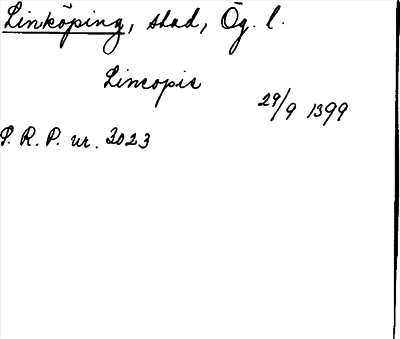 Linköping, stad, Ög. l.
Lincopie
29/9 1399
S. R. P. nr. 3023